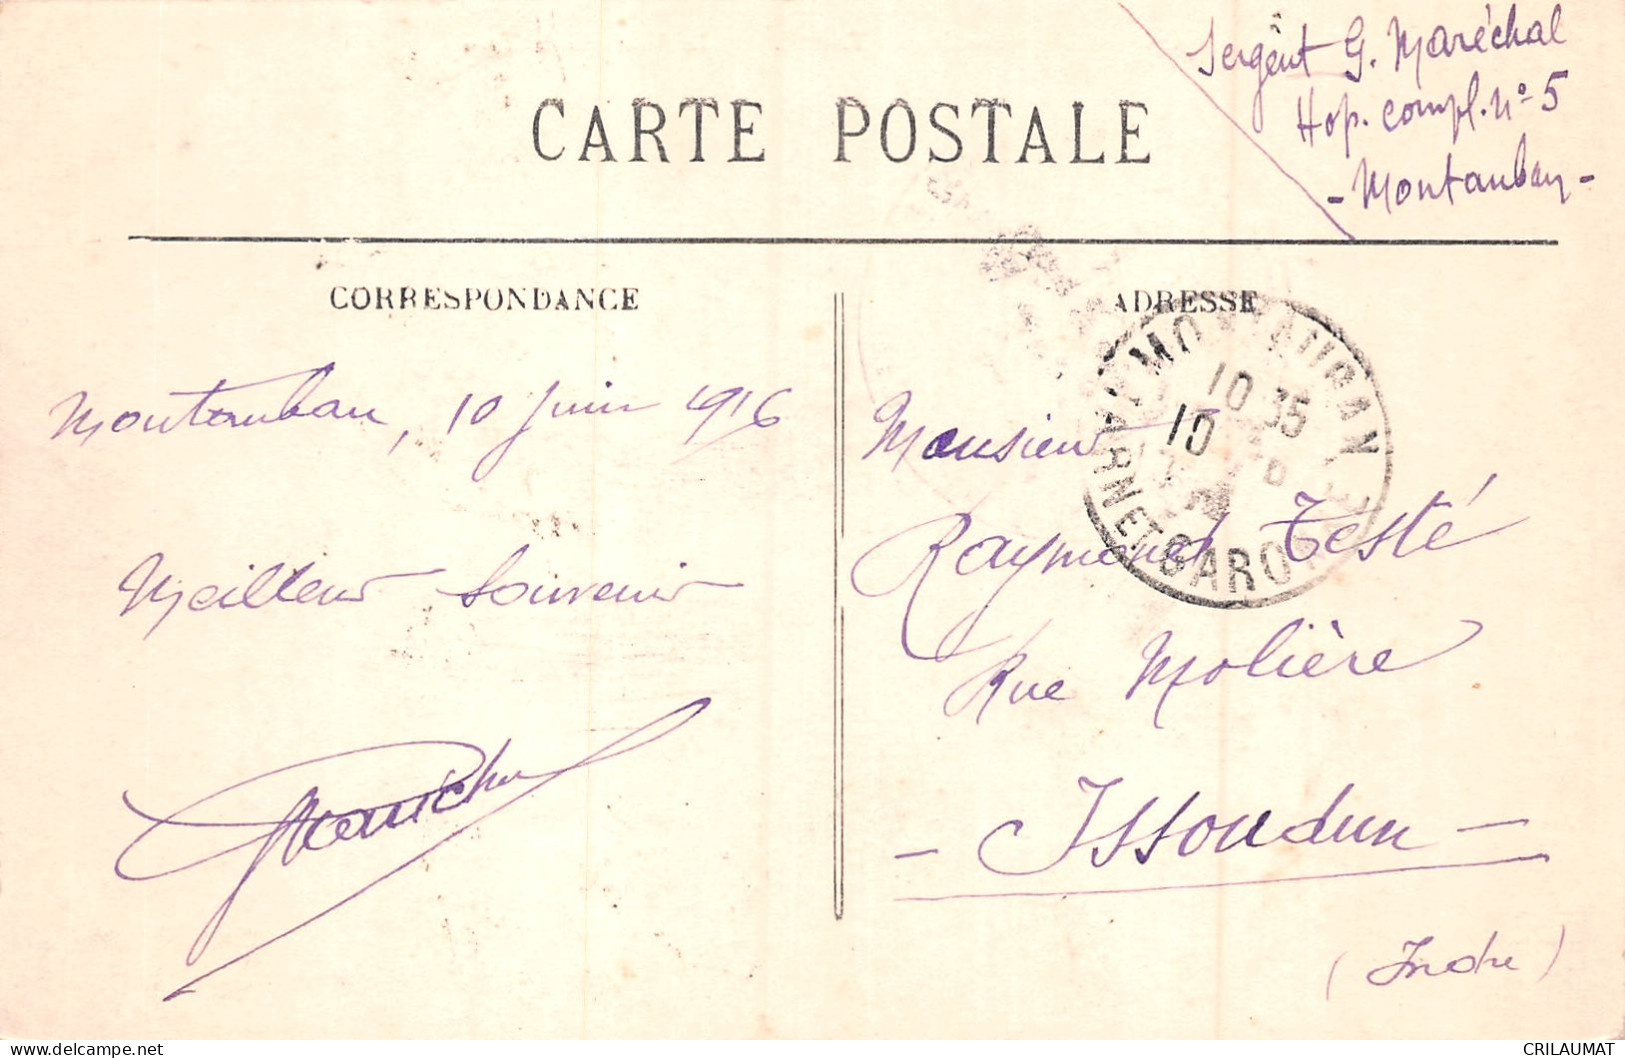 Sergent G. Maréchal
Hop. compl. nº 5
- Montauban -
CARTE POSTALE
CORRESPONDANCE
Montauban, 10 Juin 1916
Meilleur souvenir
ADRESSE
MONTAUBAN
10 35
10
TARN ET GARONNE
Monsieur
Raymond Testé
Rue Molière
- Issoudun -
(Indre)
delcampe.net
CRILAUMAT